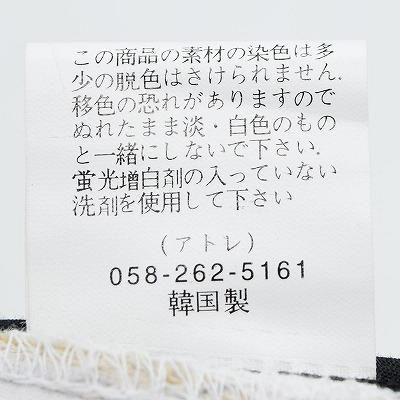 この商品の素材の染色は多
少の脱色はさけられません.
移色の恐れがありますので
ぬれたまま淡・白色のもの
と一緒にしないで下さい.
蛍光増白剤の入っていない
洗剤を使用して下さい
(アトレ)
058-262-5161
韓国製